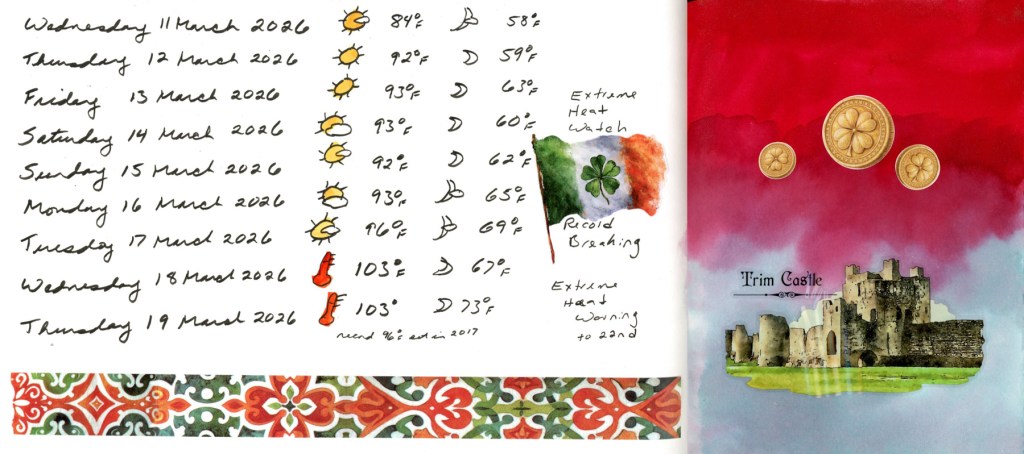 Wednesday 11 March 2026 84°F 58°F
Thursday 12 March 2026 92°F 59°F
Friday 13 March 2026 93°F 63°F
Saturday 14 March 2026 93°F 60°F
Sunday 15 March 2026 92°F 62°F
Monday 16 March 2026 93°F 65°F
Tuesday 17 March 2026 96°F 69°F
Wednesday 18 March 2026 103°F 67°F
Thursday 19 March 2026 103° 73°F
record 96° set in 2017
Extreme
Heat
Watch
Record
Breaking
Extreme
Heat
Warning
to 22nd
Trim Castle